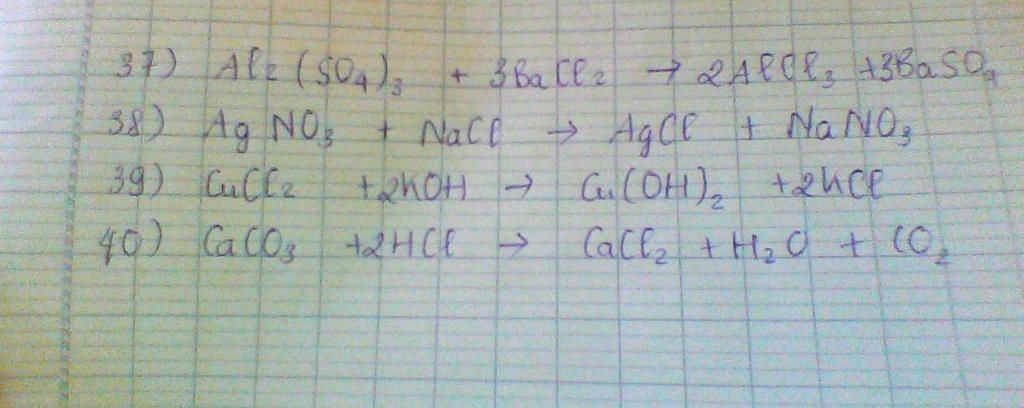 37) Al₂(SO₄)₃ + 3BaCl₂ → 2AlCl₃ + 3BaSO₄
38) AgNO₃ + NaCl → AgCl + NaNO₃
39) CuCl₂ + 2KOH → Cu(OH)₂ + 2KCl
40) CaCO₃ + 2HCl → CaCl₂ + H₂O + CO₂